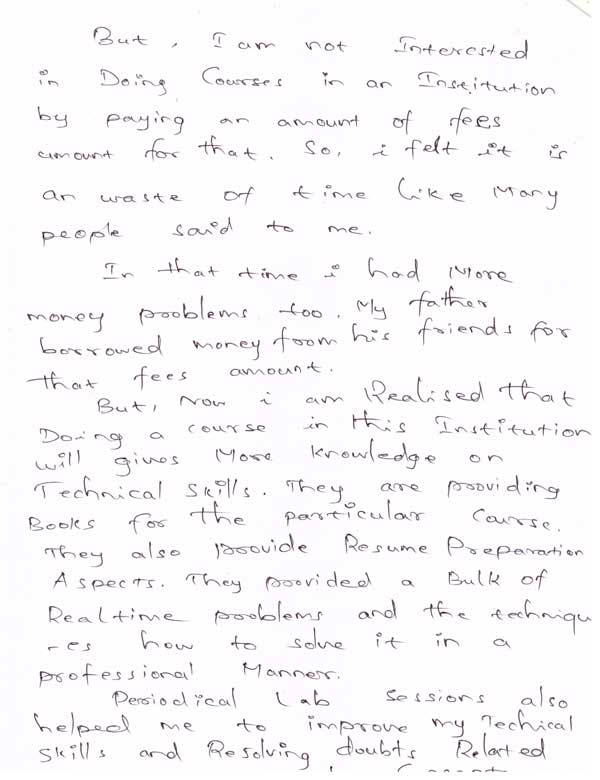 But, I am not Interested
in Doing Courses in an Institution
by paying an amount of fees
amount for that. So, i felt it is
an waste of time like Many
people said to me.
In that time i had More
money problems too. My father
borrowed money from his friends for
that fees amount.
But, Now i am Realised that
Doing a course in this Institution
will gives More knowledge on
Technical skills. They are providing
Books for the particular Course.
They also provide Resume Preparation
Aspects. They provided a Bulk of
Realtime problems and the techniqu
-es how to solve it in a
professional Manner.
Periodical Lab sessions also
helped me to improve my Techical
skills and Resolving doubts Related